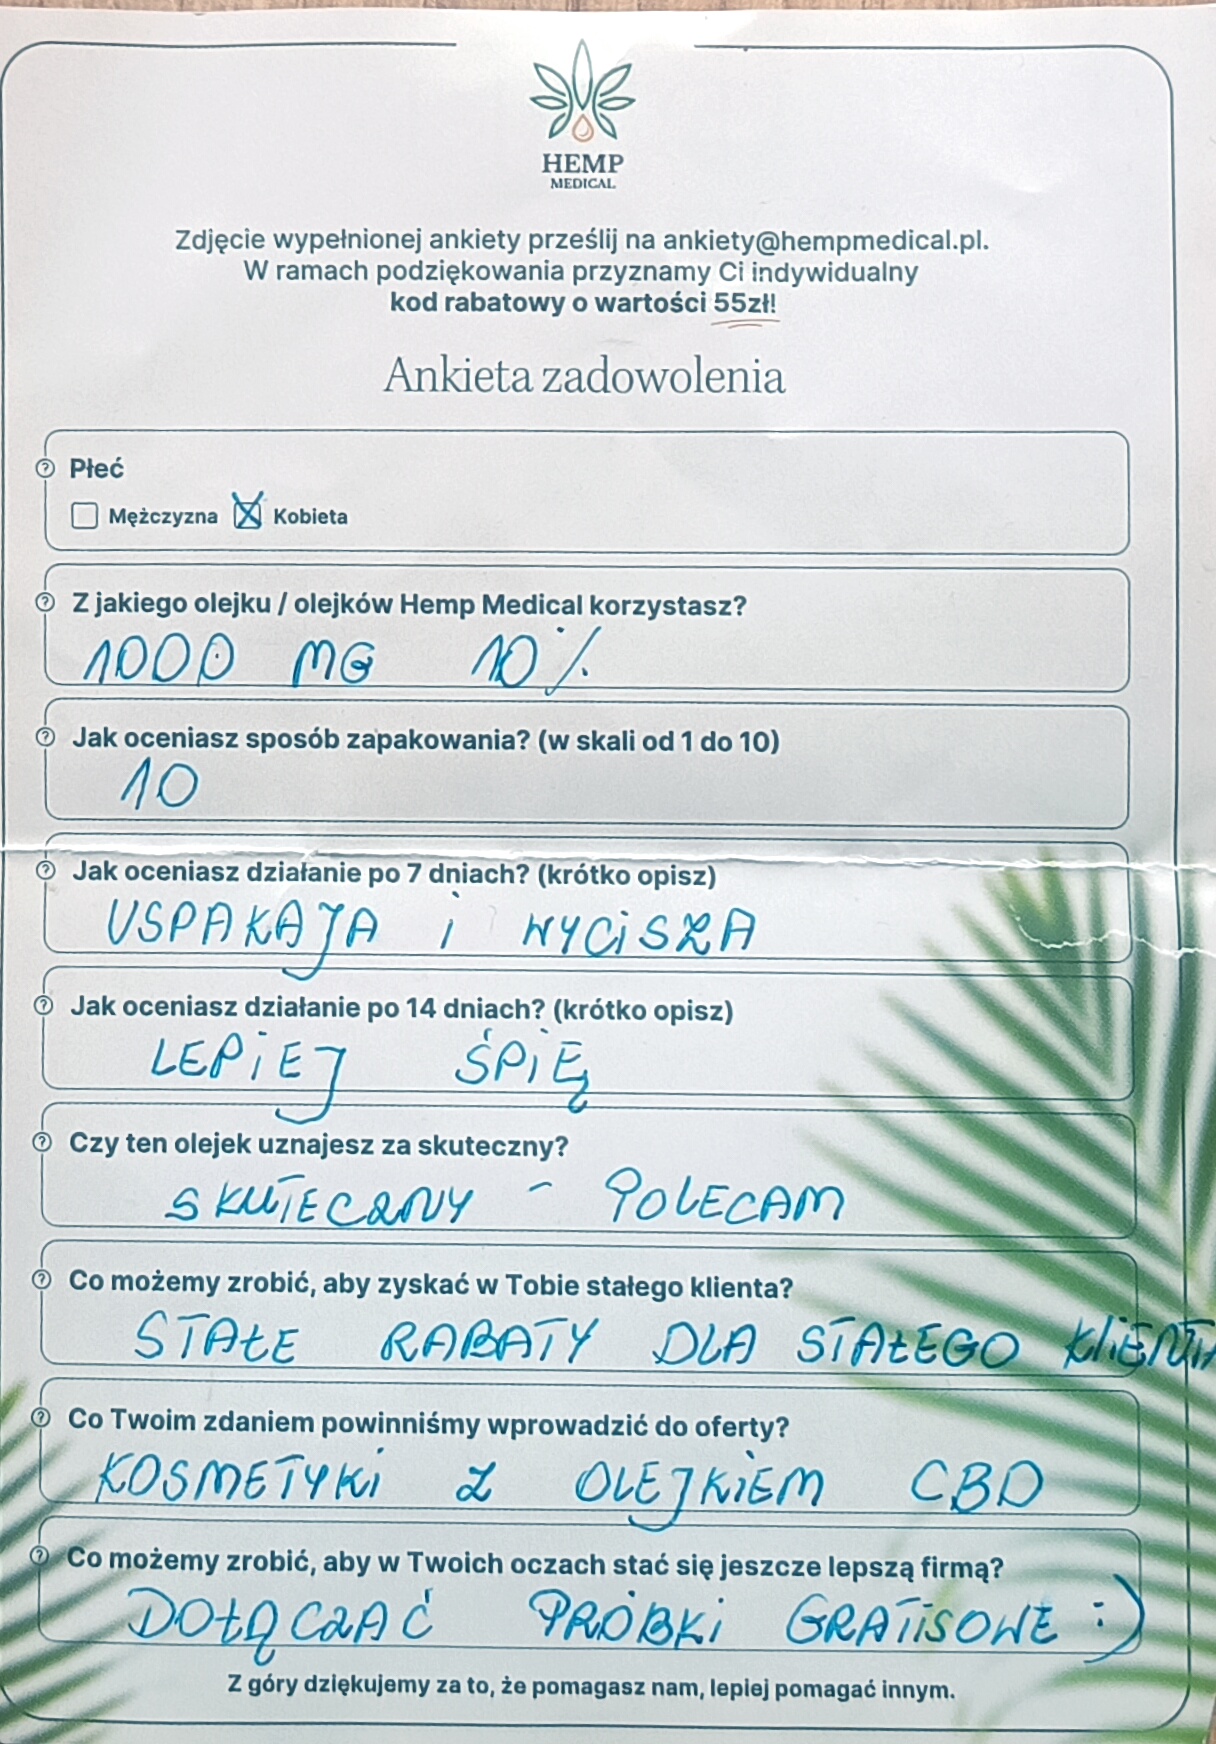 HEMP
MEDICAL
Zdjęcie wypełnionej ankiety prześlij na ankiety@hempmedical.pl.
W ramach podziękowania przyznamy Ci indywidualny
kod rabatowy o wartości 55zł!
Ankieta zadowolenia
Płeć
Mężczyzna Kobieta
Z jakiego olejku / olejków Hemp Medical korzystasz?
1000 MG 10%
Jak oceniasz sposób zapakowania? (w skali od 1 do 10)
10
Jak oceniasz działanie po 7 dniach? (krótko opisz)
USPAKAJA i WYCiSZA
Jak oceniasz działanie po 14 dniach? (krótko opisz)
LEPiEJ ŚPIĘ
Czy ten olejek uznajesz za skuteczny?
SKUTECZNY - POLECAM
Co możemy zrobić, aby zyskać w Tobie stałego klienta?
STAŁE RABATY DLA STAŁEGO KliENTA
Co Twoim zdaniem powinniśmy wprowadzić do oferty?
KOSMETYKi Z OLEJKiEM CBD
Co możemy zrobić, aby w Twoich oczach stać się jeszcze lepszą firmą?
DOŁĄCZAĆ PRÓBKi GRATiSOWE :)
Z góry dziękujemy za to, że pomagasz nam, lepiej pomagać innym.